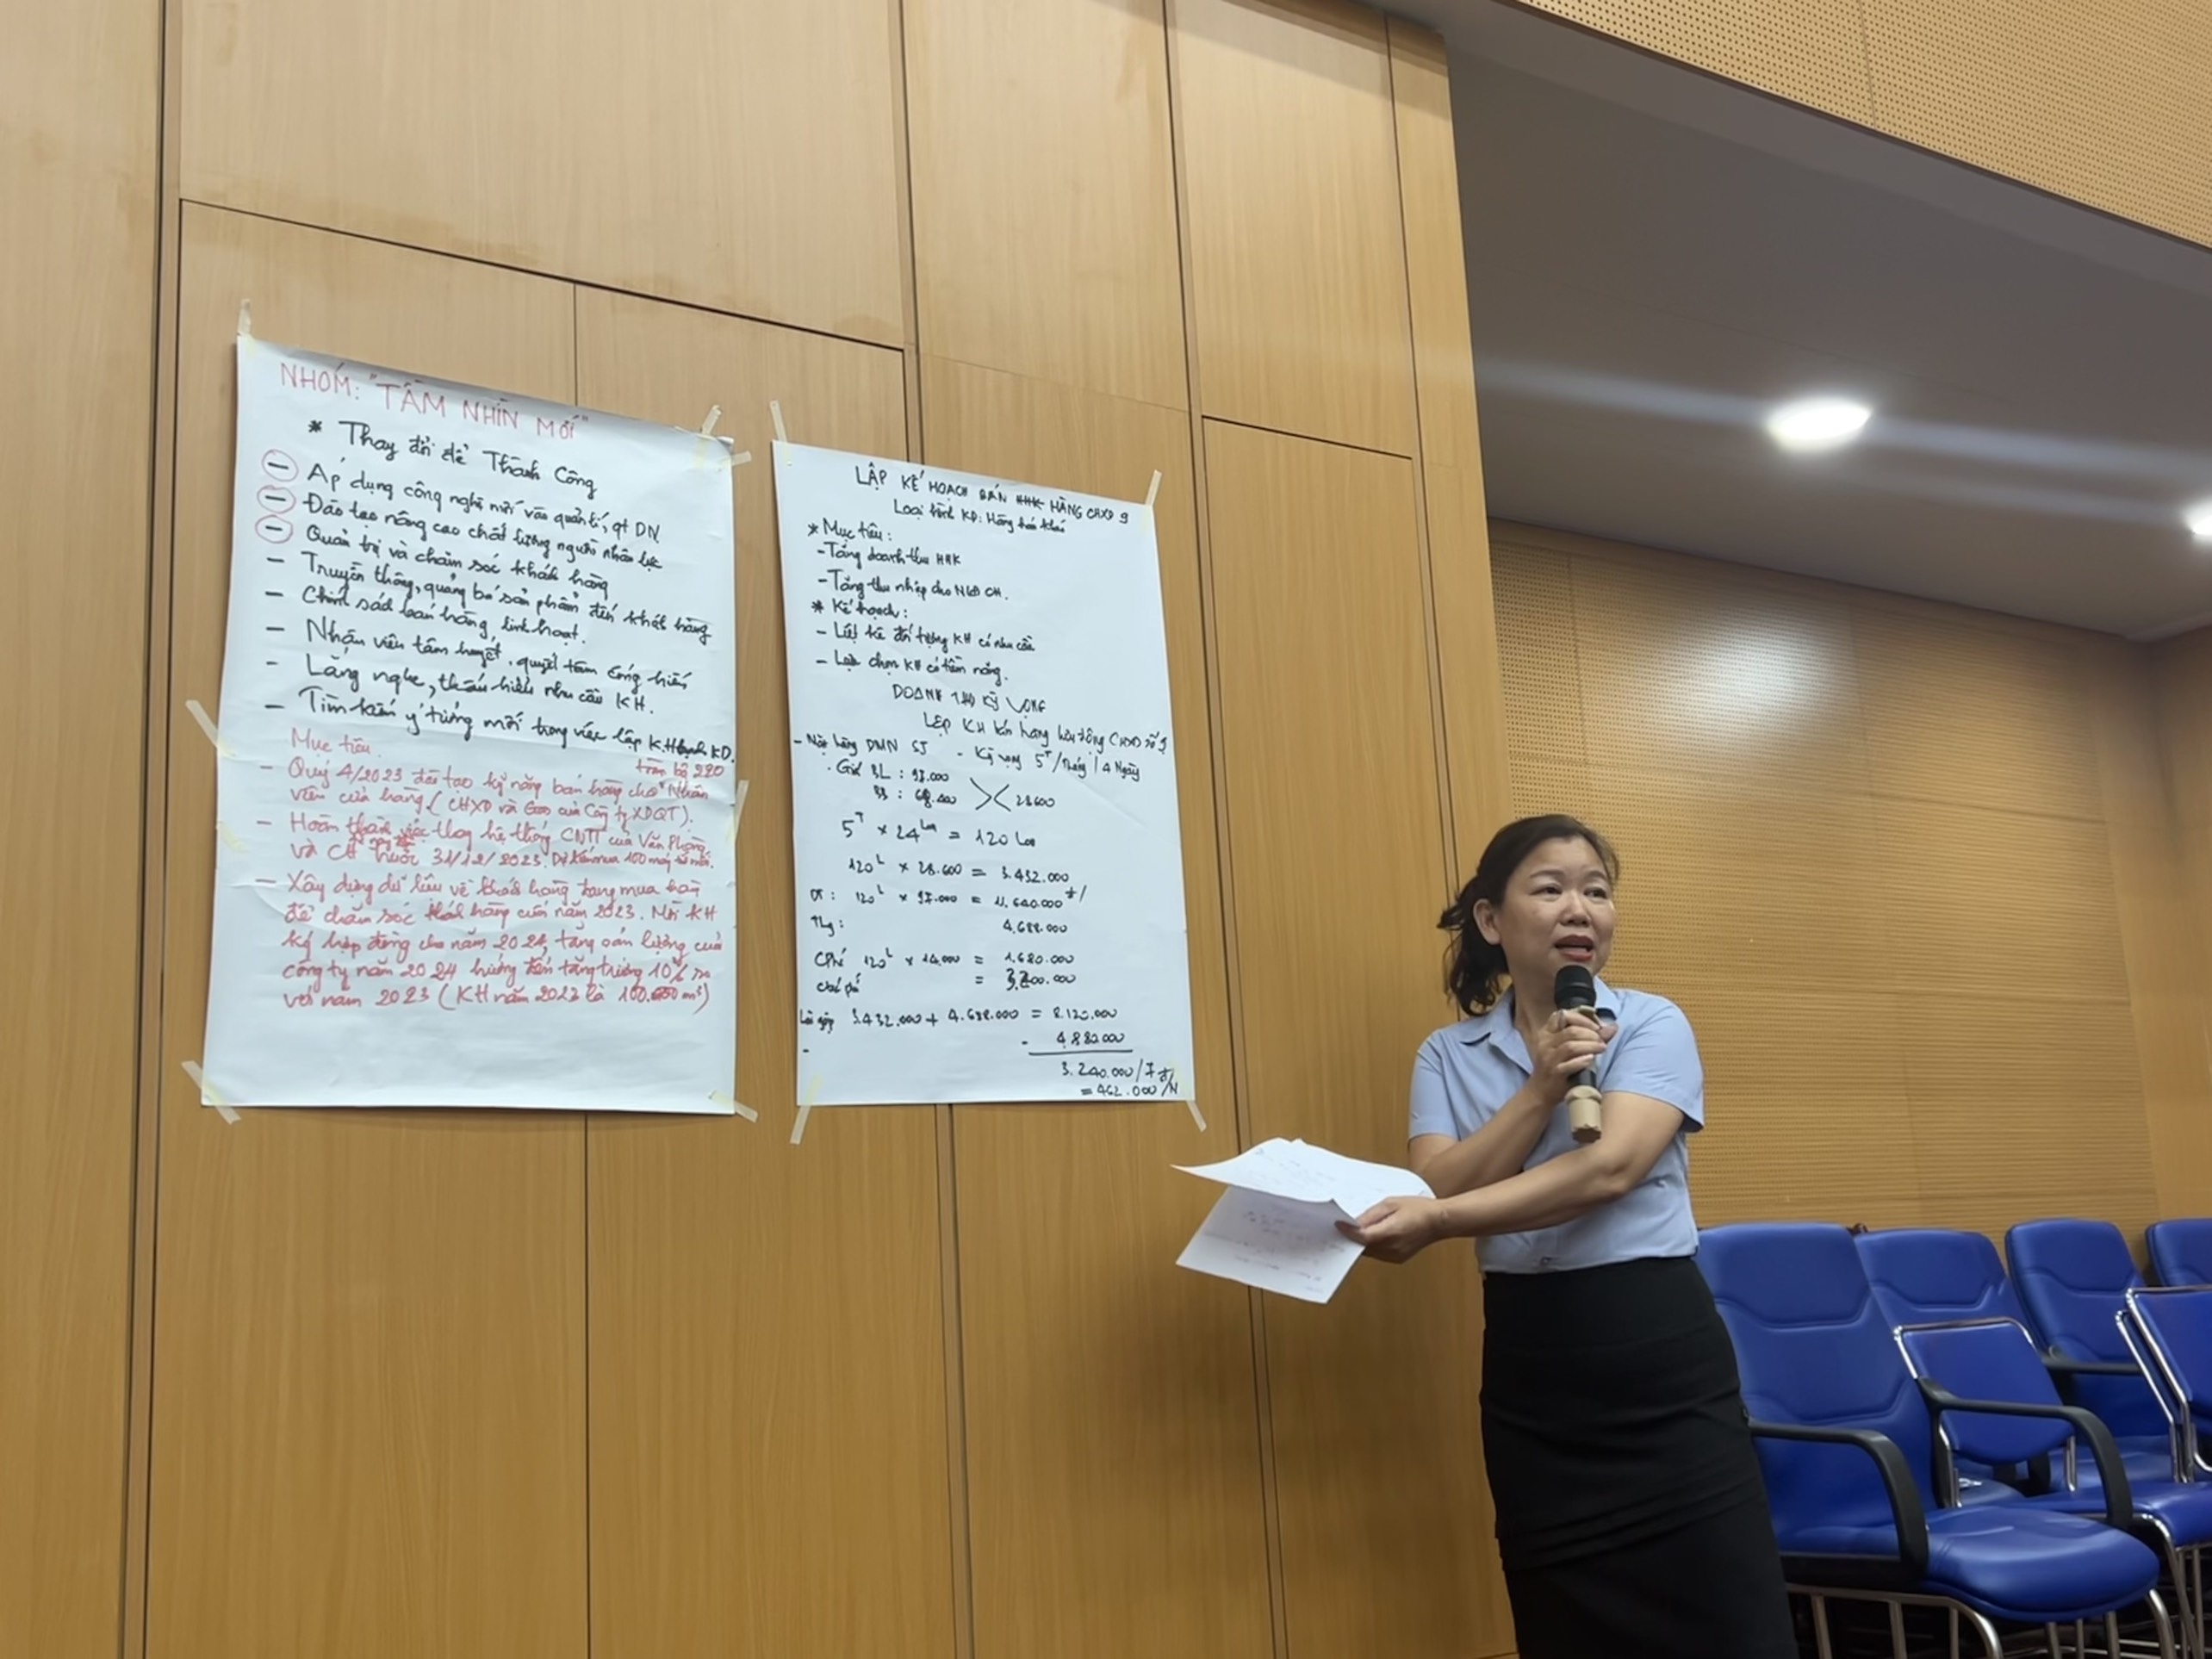 NHÓM: "TẦM NHÌN MỚI"
* Thay đổi để Thành Công
- Áp dụng công nghệ mới vào quản lí, qt DN
- Đào tạo nâng cao chất lượng người nhân lực
- Quản trị và chăm sóc khách hàng
- Truyền thông, quảng bá sản phẩm đến khách hàng
- Chính sách bán hàng linh hoạt.
- Nhân viên tâm huyết, quyết tâm cống hiến
- Lắng nghe, thấu hiểu nhu cầu KH.
- Tìm kiếm ý tưởng mới trong việc lập K.H KD.
Mục tiêu
- Quý 4/2023 đào tạo kỹ năng bán hàng cho toàn bộ 220 Nhân
viên cửa hàng (CHXD và Gas của Công ty XDQT).
- Hoàn thành việc thay hệ thống CNTT của Văn Phòng
và CH trước 31/12/2023. Dự kiến mua 100 máy
- Xây dựng dữ liệu về khách hàng đang mua hàng
để chăm sóc khách hàng cuối năm 2023. Mời KH
ký hợp đồng cho năm 2024, tăng sản lượng của
công ty năm 2024 hướng đến tăng trưởng 10% so
với năm 2023 (KH năm 2023 là m³)
LẬP KẾ HOẠCH BÁN HÀNG CHXD 9
Loại hình KD: Hàng hóa khác
* Mục tiêu:
- Tăng doanh thu HHK
- Tăng thu nhập cho NLĐ CH.
* Kế hoạch:
- Liệt kê đối tượng KH có nhu cầu
- Lựa chọn KH có tiềm năng.
DOANH THU KỲ VỌNG
LẬP KH bán hàng lưu động CHXD số 9
- Mặt hàng DMN SJ - Kỳ vọng 5T/Tháng / 4 Ngày
. Giá BL: 97.000
68.400 28.600
5T × 24 Lon = 120 Lon
120L × 28.600 = 3.432.000
DT: 120L × 97.000 = 11.640.000 đ/
4.688.000
CPhí 120L × 14.000 = 1.680.000
Chi phí = 3.200.000
Lãi gộp 3.432.000 + 4.688.000 = 8.120.000
- 4.880.000
3.240.000/7
= 462.000 đ/N